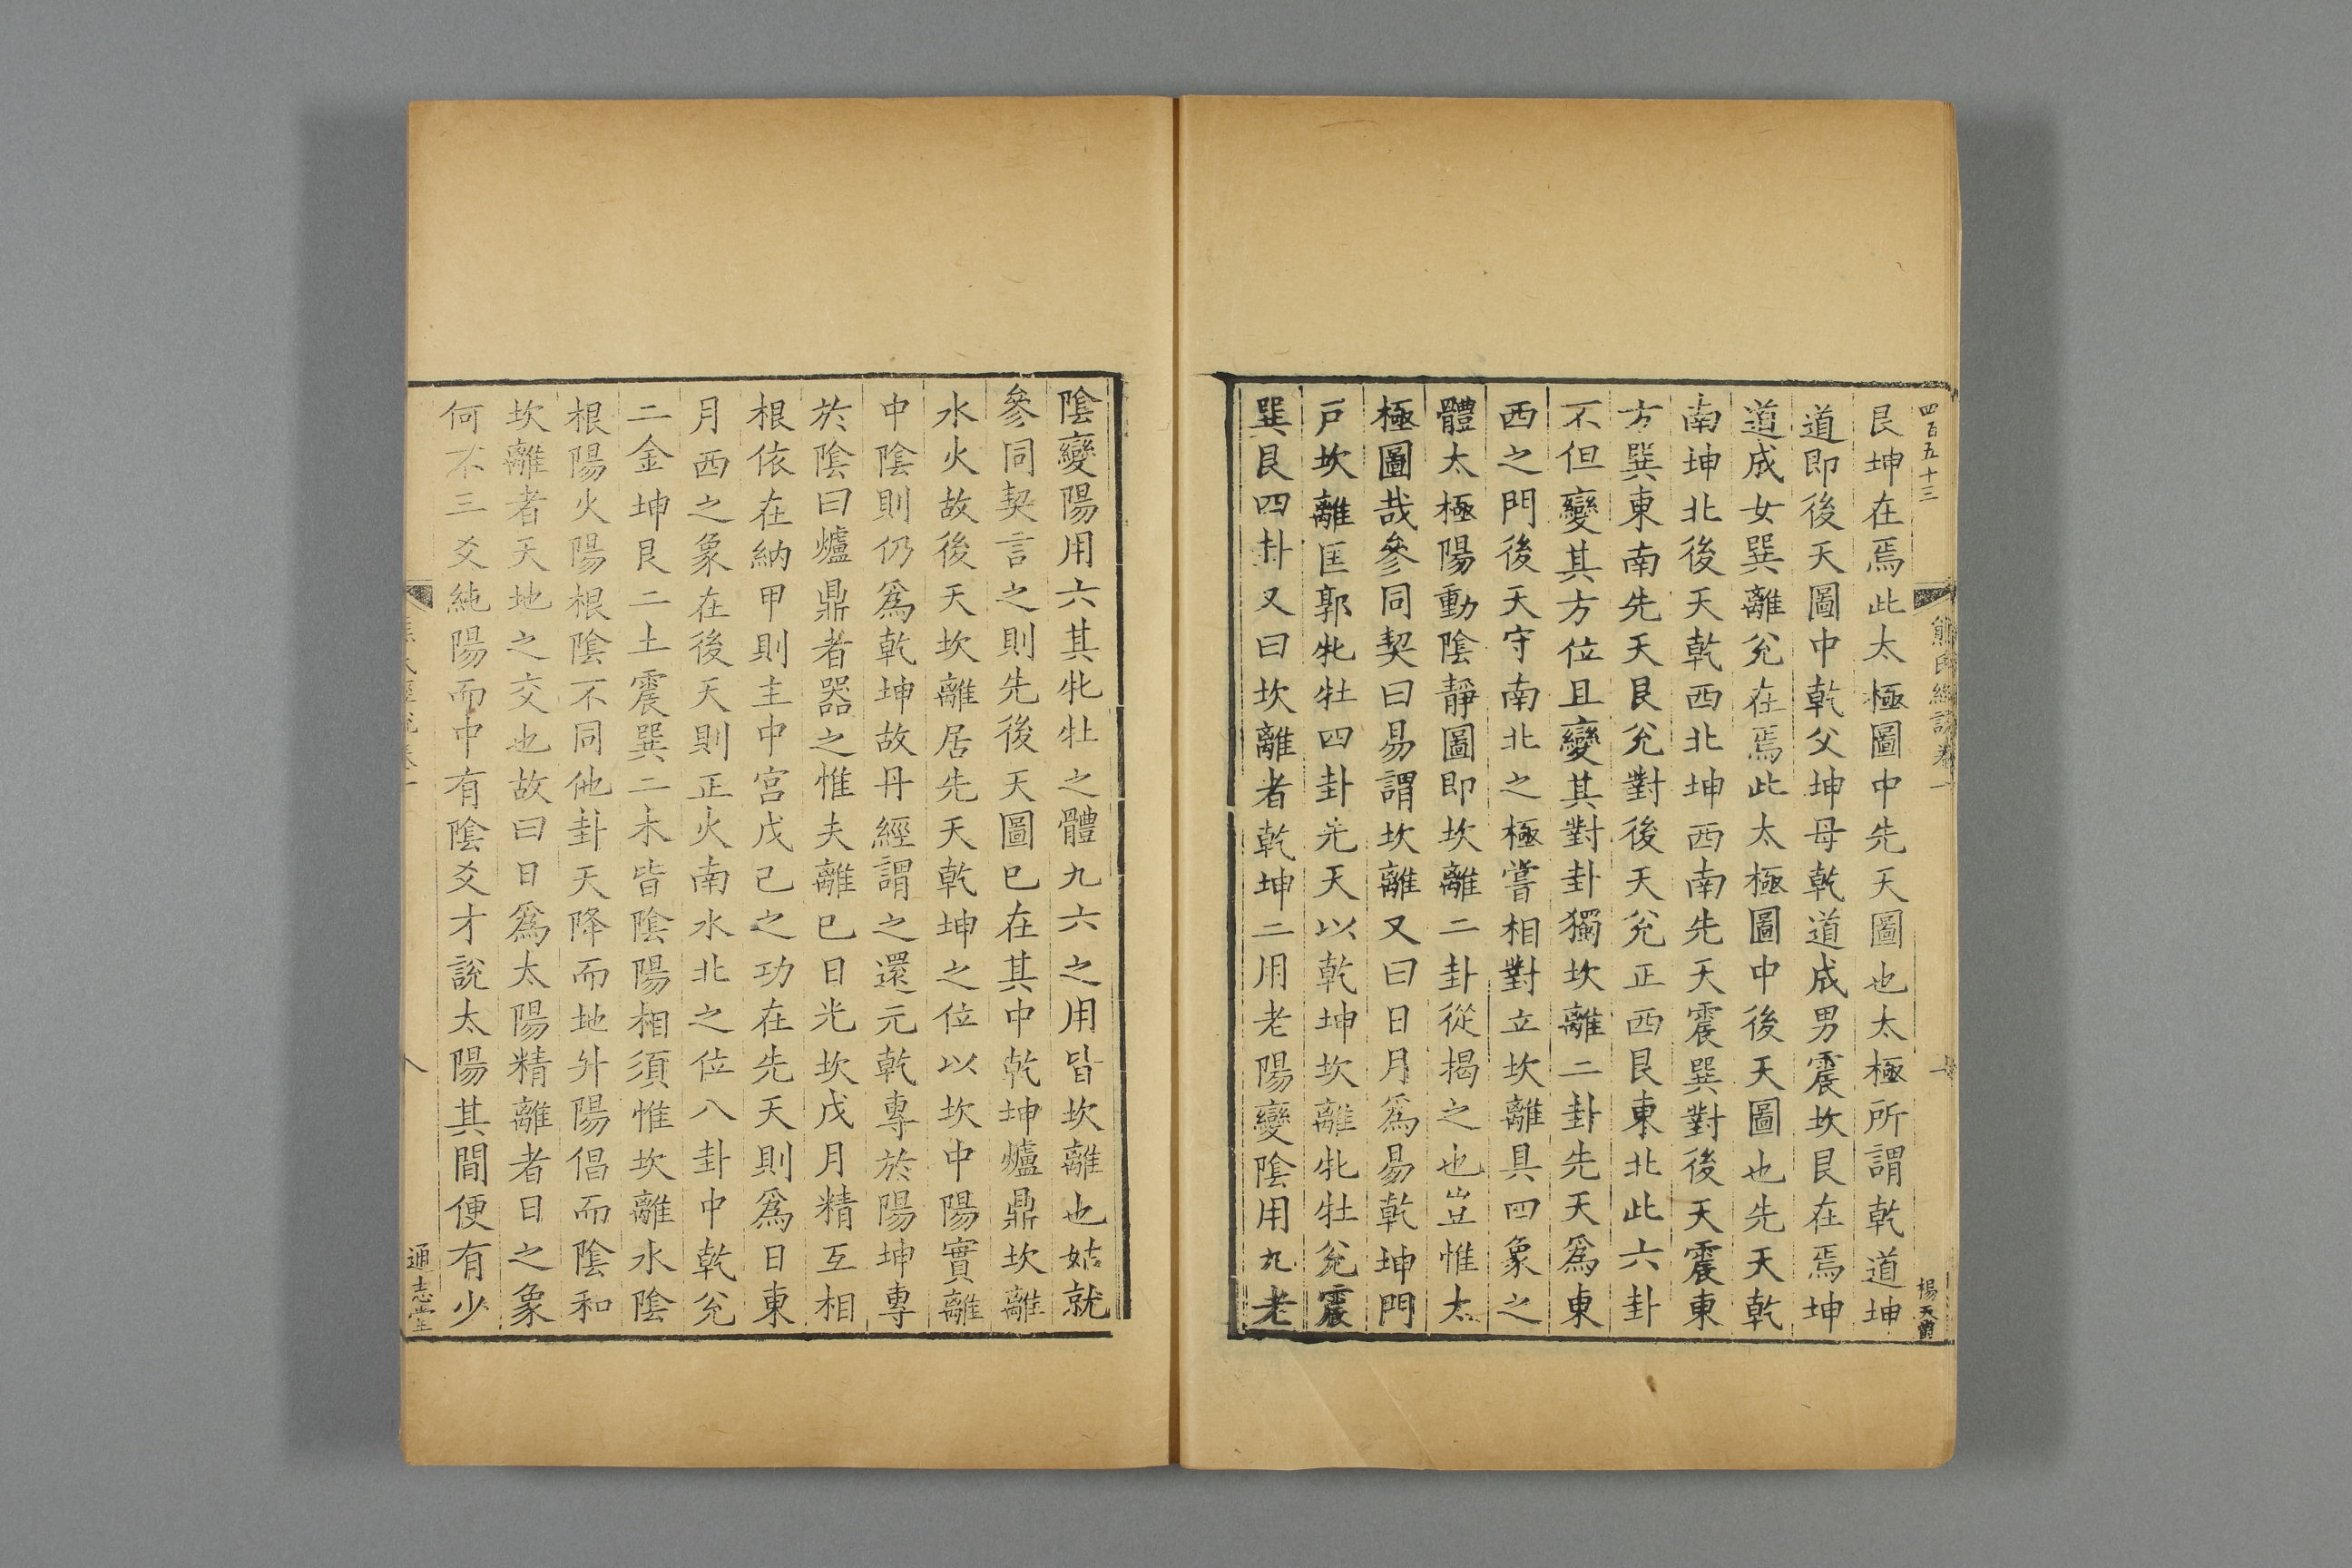 四百五十三
熊氏經說卷一
楊天爵
艮坤在焉此太極圖中先天圖也太極所謂乾道坤
道即後天圖中乾父坤母乾道成男震坎艮在焉坤
道成女巽離兊在焉此太極圖中後天圖也先天乾
南坤北後天乾西北坤西南先天震巽對後天震東
方巽東南先天艮兊對後天兊正西艮東北此六卦
不但變其方位且變其對卦獨坎離二卦先天爲東
西之門後天守南北之極嘗相對立坎離具四象之
體太極陽動陰靜圖即坎離二卦從揭之也豈惟太
極圖哉參同契曰易謂坎離又曰日月爲易乾坤門
戸坎離匡郭牝牡四卦先天以乾坤坎離牝牡兊震
巽艮四卦又曰坎離者乾坤二用老陽變陰用九老
陰變陽用六其牝牡之體九六之用皆坎離也姑就
參同契言之則先後天圖已在其中乾坤爐鼎坎離
水火故後天坎離居先天乾坤之位以坎中陽實離
中陰則仍爲乾坤故丹經謂之還元乾專於陽坤專
於陰曰爐鼎者器之惟夫離已日光坎戊月精互相
根依在納甲則主中宮戊己之功在先天則爲日東
月西之象在後天則正火南水北之位八卦中乾兊
二金坤艮二土震巽二木皆陰陽相須惟坎離水陰
根陽火陽根陰不同他卦天降而地升陽倡而陰和
坎離者天地之交也故曰日爲太陽精離者日之象
何不三爻純陽而中有陰爻才說太陽其間便有少
八
通志堂